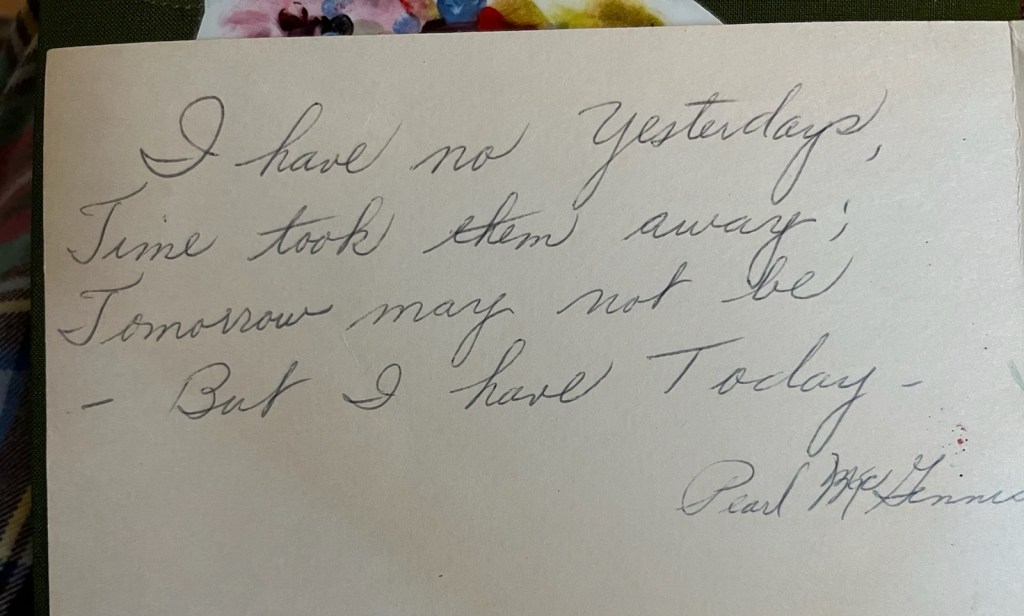 I have no Yesterdays,
Time took them away;
Tomorrow may not be
- But I have Today -
Pearl McGinnis